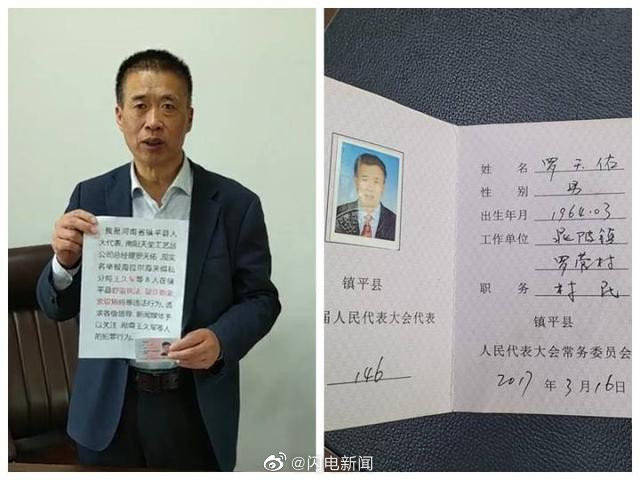 我是河南省镇平县人
大代表,南阳天宝工艺品
公司总经理罗天佑,现实
名举报海拉尔海关缉私
分局王久军等8人在镇
平县野蛮执法,
等违法行为,请
求各级领导、新闻媒体予
以关注,彻查王久军等人
的犯罪行为。
镇平县
届人民代表大会代表
146
姓名 罗天佑
性别 男
出生年月 1964.03
工作单位 晁陂镇
罗营村
职务 村民
镇平县
人民代表大会常务委员会
2017年3月16日
@闪电新闻